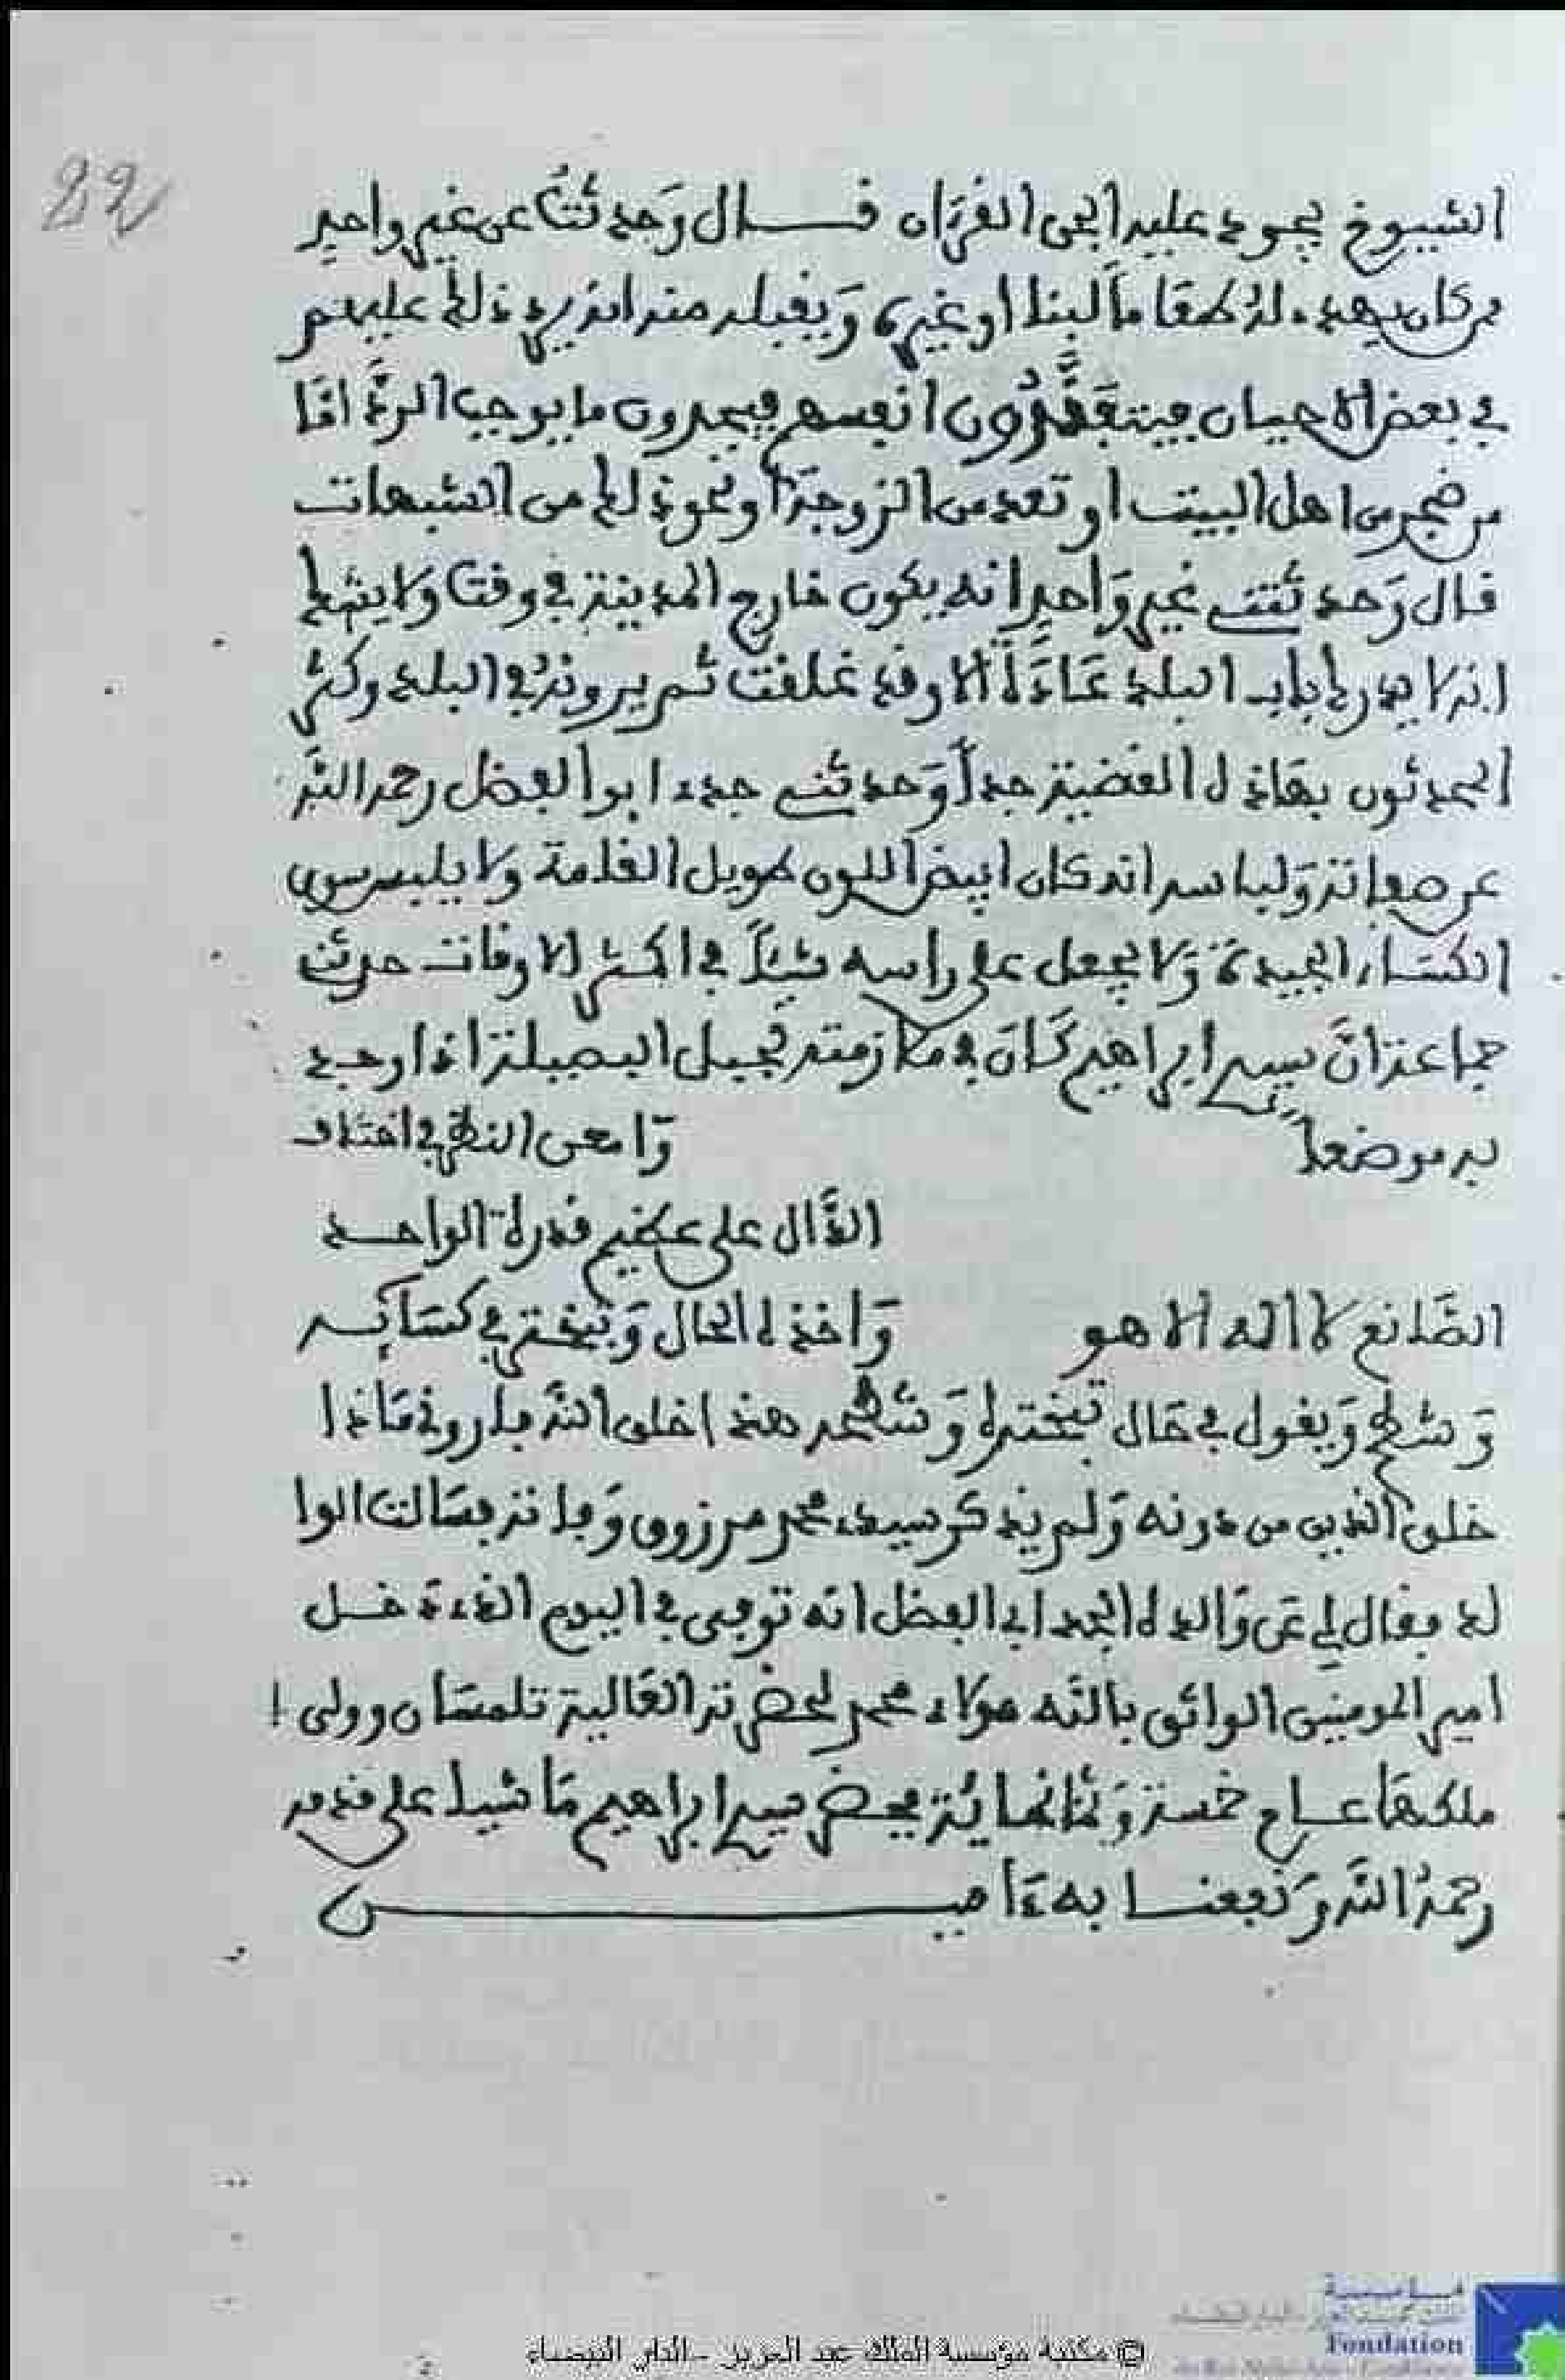 الشيوخ يجود عليه ابحى القرءان قــال وَحدثتُ عن غير واحدٍ
من كان يهدء له طعَاماً لبنا او غيره وَيقبله منه انه يرد ذلك عليهم
في بعض الاحيان فيتفَقَّدُون انفسهم فيجدون ما يوجب الردَّ امَّا
من ضجر من اهل البيت او تعد من الزوجة او نحو ذلك من الشبهات
قال وَحدثنے غير وَاحدٍ انه يكون خارج المدينة في وقت وَلا يشك
انه لا يدرك باب البلد عَادَةً الا وقد غلقت ثم يرونهُ في البلد وكثر
المحدثون بهاذه القضية جداً وَحدثنے جدء ابو الفضل رحمه الله
عن صفاته وَلباسه انه كان ابيض اللون طويل القامة وَلا يلبس سوى
الكسَاء الجيدة وَلا يجعل على راسه شيئاً في اكثر الاوقات حدثنے
جماعة انَّ سيدے ابراهيم كَانَ في ملازمته لجبل البصيلة اذا وجد
به موضعاً وَّامعن النظر في
الدَّال على عظيم قدرة الواحــد
الصَّانع لا اله الا هو وَاخذه الحال وَتبختر في كسَائِــه
وَشطح وَيقول في حَال تبختره وَشطحه هذا خلق الله فاروني مَاذا
خلق الذين من دونه وَلم يذكر سيدء محمد مرزوق وَفاته فسَالت الوا
لد فقال لي عن وَالده الجد ابي الفضل انه توفى في اليوم الذء دَخــل
امير المومنين الواثق بالله مولاء محمد لحضرته العَالية تلمسَان وولى ا
ملكهَا عــام خمسة وَثمانمائة فحضر سيدے ابراهيم مَاشيا على قدمه
رحمهُ الله وَنفعنــا به ءَاميــــــن
© مكتبة مؤسسة الملك عبد العزيز - الدار البيضاء
Fondation